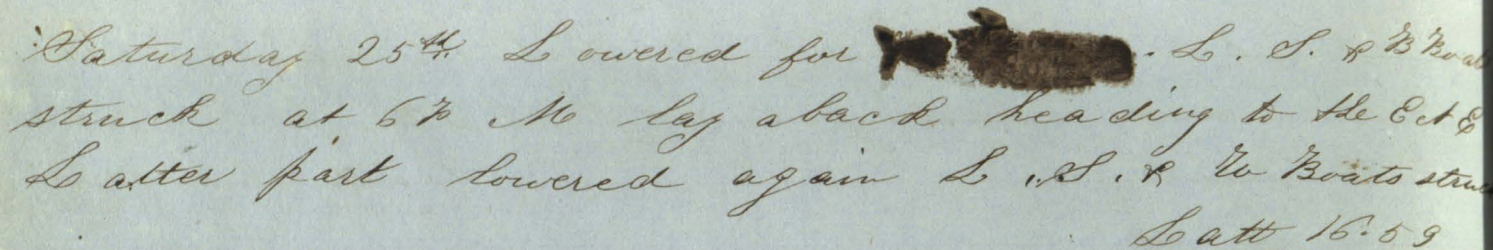 Saturday 25th Lowered for L. S. & B Boats
struck at 6 P M lay aback heading to the E
Latter part lowered again L. S. & W Boats struck
Latt 16.59